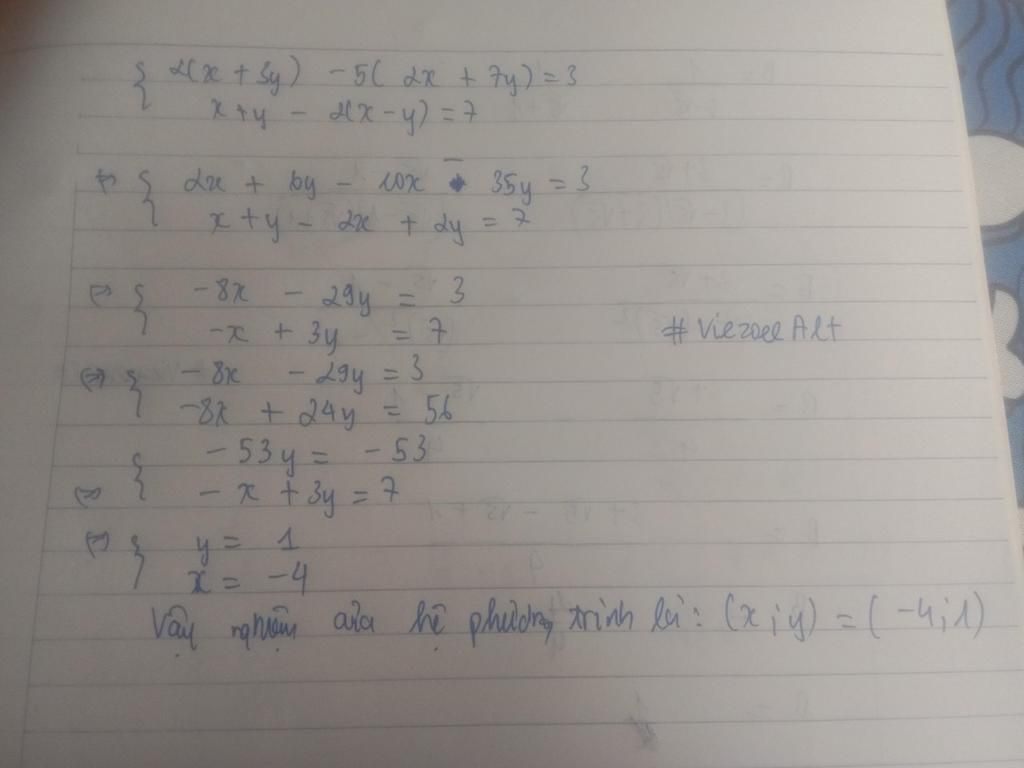 { 2(x + 3y) - 5( 2x + 7y) = 3
x + y - 2(x - y) = 7
⇔ { 2x + 6y - 10x - 35y = 3
x + y - 2x + 2y = 7
⇔ { -8x - 29y = 3
-x + 3y = 7
# Viezoee Alt
⇔ { -8x - 29y = 3
-8x + 24y = 56
⇔ { -53y = -53
-x + 3y = 7
⇔ { y = 1
x = -4
Vậy nghiệm của hệ phương trình là: (x ; y) = ( -4 ; 1)